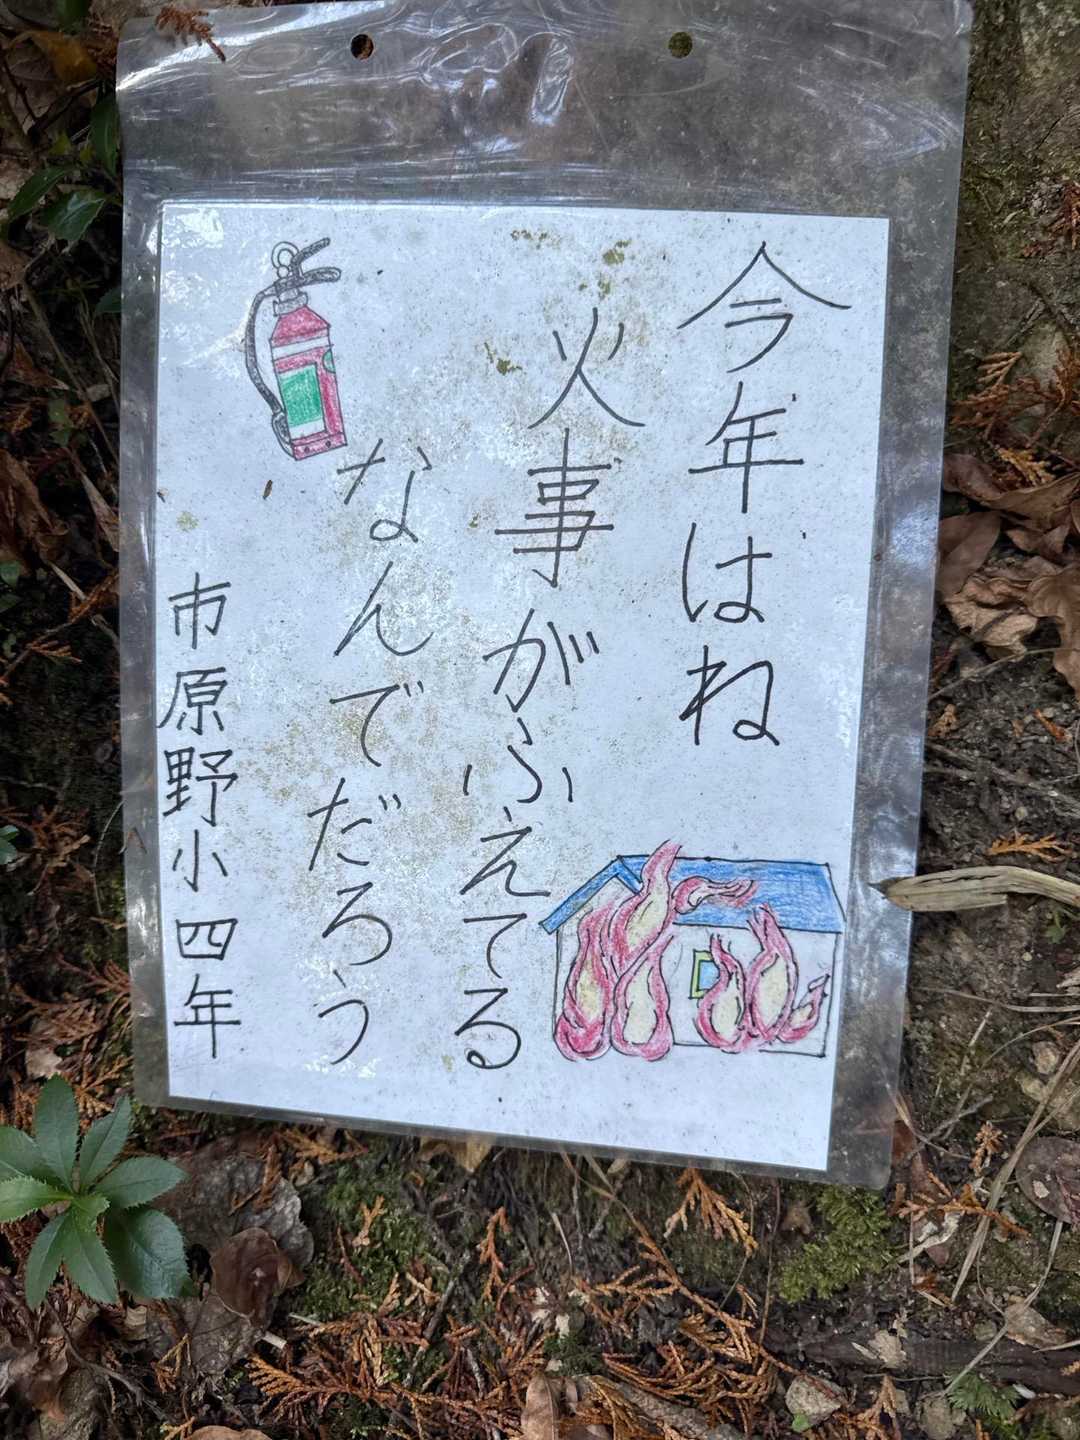 今年はね
火事がふえてる
なんでだろう
市原野小四年